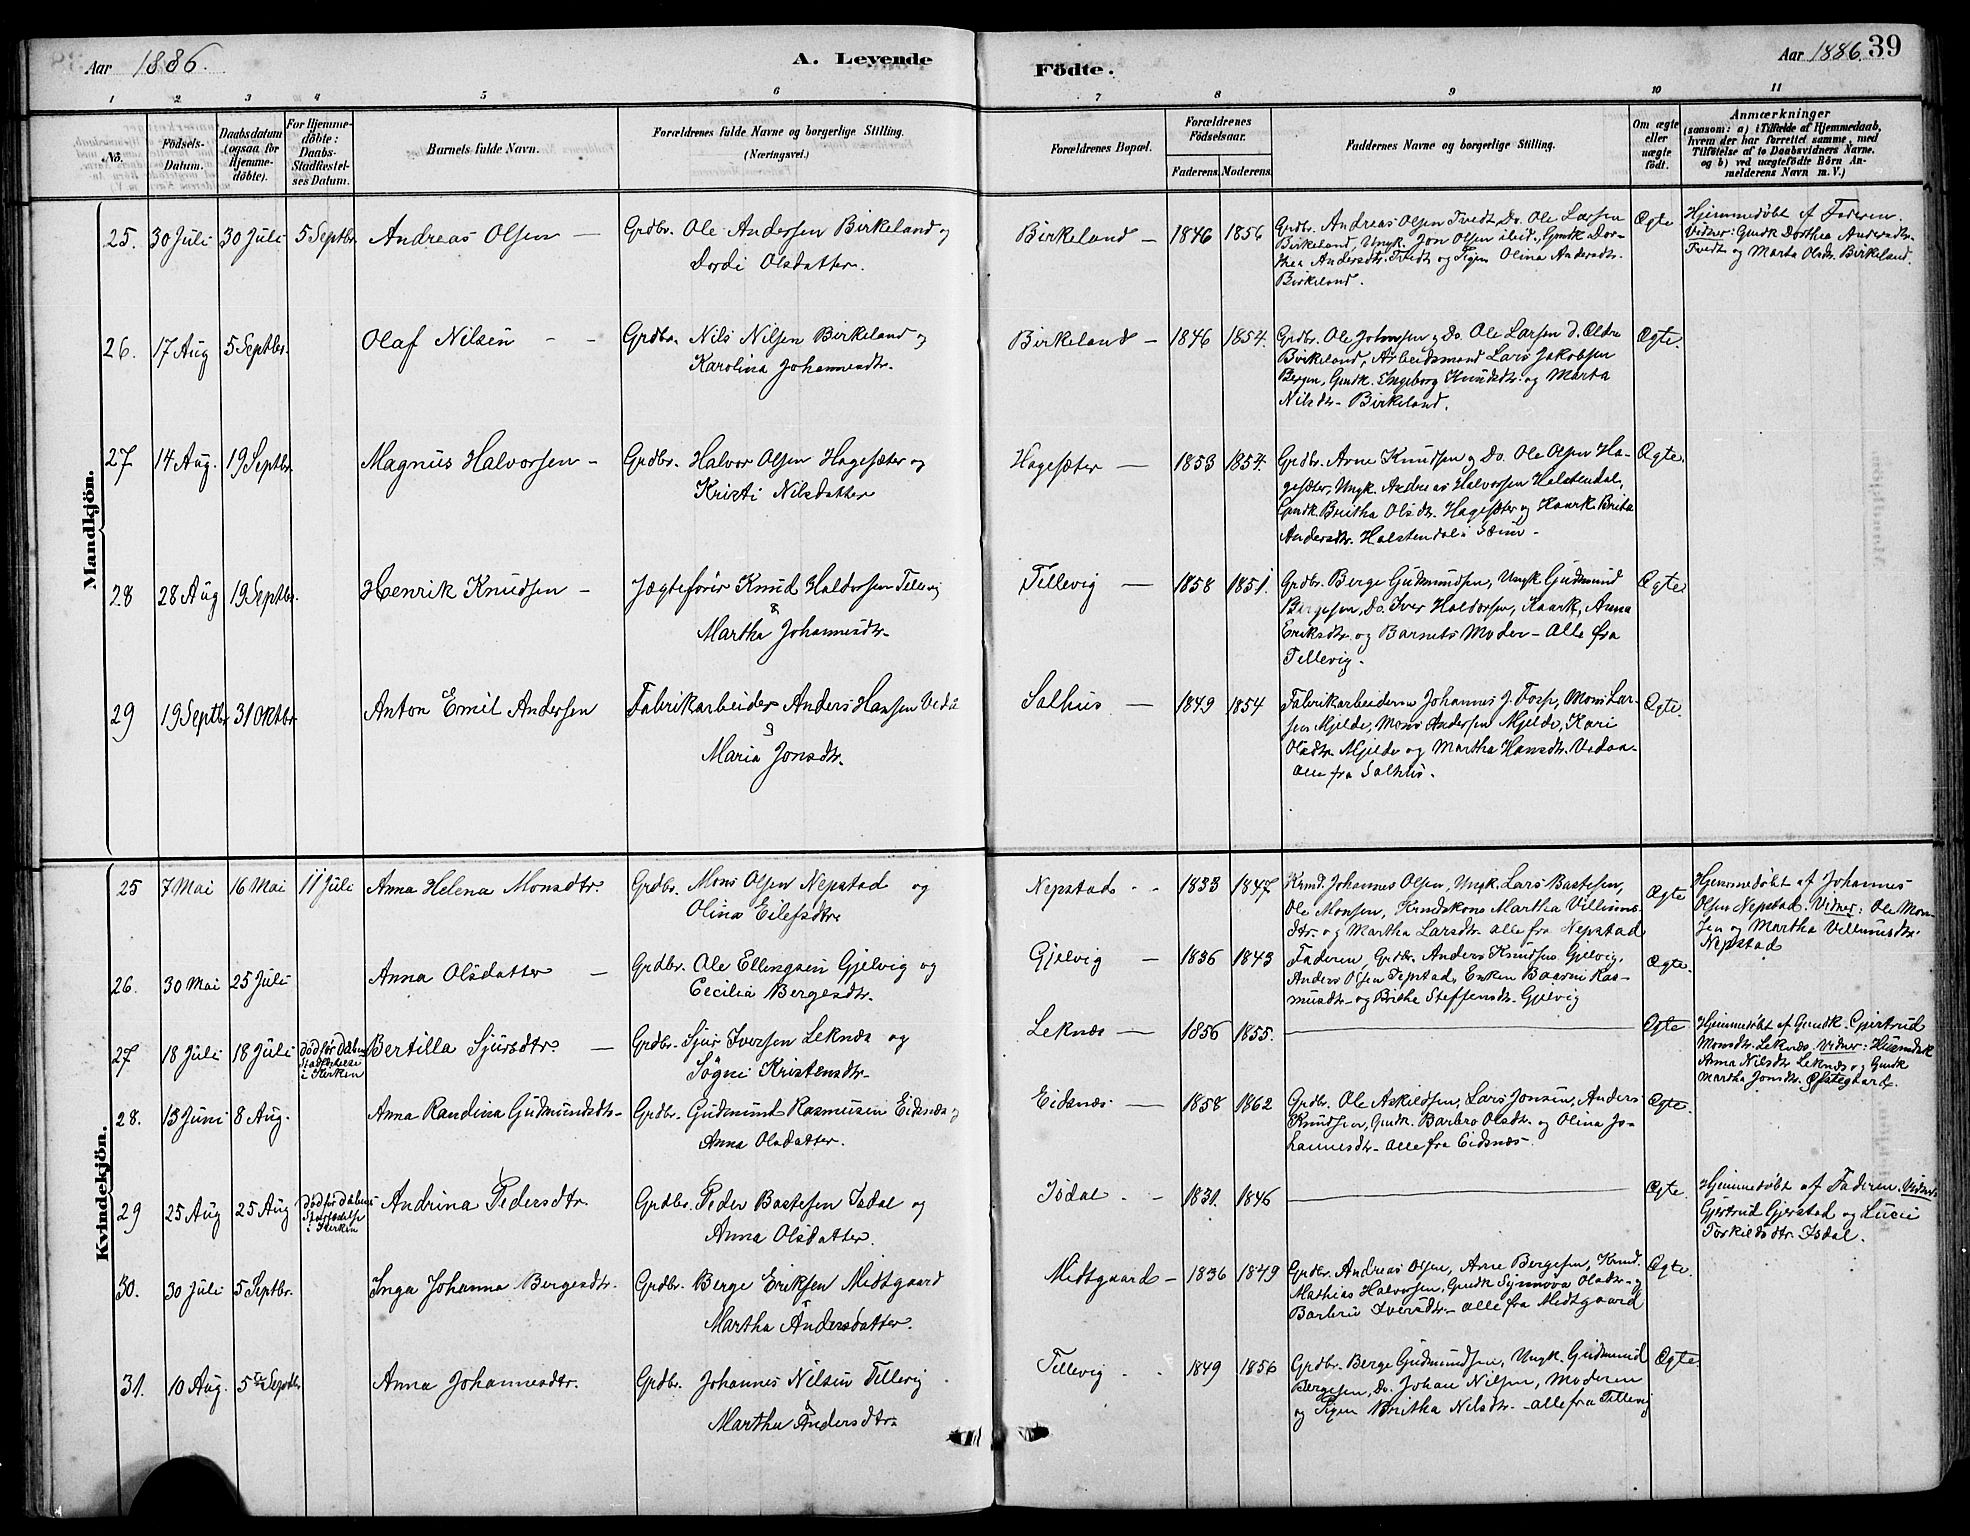 Aar 1886.
A. Levende
Födte.
Aar 1886.
39
1
2
3
4
5
6
7
8
9
10
11
No.
Födsels-
Datum.
Daabsdatum
(ogsaa for
Hjemme-
döbte).
For Hjemme-
döbte:
Daabs-
Stadfæstel-
ses Datum.
Barnets fulde Navn.
Forældrenes fulde Navne og borgerlige Stilling.
(Næringsvei.)
Forældrenes Bopæl.
Forældrenes
Födselsaar.
Faderens.
Moderens.
Faddernes Navne og borgerlige Stilling.
Om ægte
eller
uægte
født.
Anmærkninger
(saasom: a) i Tilfælde af Hjemmedaab,
hvem der har forrettet samme, med
Tilföielse af to Daabsvidners Navne,
og b) ved uægtefödte Börn An-
melderens Navn m. V.)
Mandkjön.
25. 30 Juli 30 Juli 5 Septbr.
Andreas Olsen
Grdbr. Ole Andersen Birkeland og
Dordi Olsdatter.
Birkeland
1846 1856
Grdbr. Andreas Olsen Tvedt, Do. Ole Larsen
Birkeland, Ungk. Jon Olsen ibid., Gmdk Dor-
thea Andersdtr. Tvedt og Pigen Olina Andersdtr.
Birkeland.
Ægte
Hjemmedøbt af Faderen.
Vidner: Gmdk Dorthea Andersdtr.
Tvedt og Marta Olsdtr. Birkeland.
26. 17 Aug 5 Septbr.
Olaf Nilsen
Grdbr. Nils Nilsen Birkeland og
Karolina Johannesdtr.
Birkeland
1846 1854.
Grdbr. Ole Johnsen, Do. Ole Larsen d. Ældre
Birkeland, Arbeidsmand Lars Jakobsen
Bergen, Gmdk. Ingeborg Knudsdtr. og Marta
Nilsdtr. Birkeland.
Ægte.
27 14 Aug. 19 Septbr.
Magnus Halvorsen
Grdbr. Halvor Olsen Hagesæter og
Kristi Nilsdatter
Hagesæter
1853 1854.
Grdbr. Arne Knudsen og Do. Ole Olsen Ha-
gesæter, Ungk. Andreas Halvorsen Halstendal,
Gmdk Britha Olsdtr. Hagesæter og Kaark. Brita
Andersdtr. Halstendal i Sæim.
Ægte.
28 28 Aug 19 Septbr.
Henrik Knudsen
Jægtefører Knud Haldorsen Tellevig
&
Martha Johannesdtr.
Tellevig
1858 1851.
Grdbr. Berge Gudmundsen, Ungk Gudmund
Bergesen, Do. Iver Haldorsen, Kaark. Anna
Eriksdtr. og Barnets Moder - Alle fra
Tellevig.
Ægte
29 19 Septbr 31 Oktbr.
Anton Emil Andersen
Fabrikarbeider Anders Hansen Vedå
&
Maria Jonsdtr.
Salhus
1849 1854
Fabrikarbeiderne Johannes J. Foss, Mons Lar-
sen Mjelde, Mons Andersen Mjelde, Kari
Olsdtr. Mjelde og Martha Hansdtr. Vedaa -
alle fra Salhus.
Ægte.
Kvindekjön.
25 7 Mai 16 Mai 11 Juli
Anna Helena Monsdtr.
Grdbr. Mons Olsen Nepstad og
Olina Eilefsdtr.
Nepstad
1833 1847
Krmd. Johannes Olsen, Ungk. Lars Bastesen,
Ole Monsen, Krmdskone Martha Villums-
dtr. og Martha Larsdtr. alle fra Nepstad
Ægte
Hjemmedøbt af Johannes
Olsen Nepstad. Vidner: Ole Mon-
sen og Martha Villumsdtr.
Nepstad
26. 30 Mai 25 Juli
Anna Olsdatter
Grdbr. Ole Ellingsen Gjelvig og
Cecilia Bergesdtr.
Gjelvig
1836 1843
Faderen, Grdbr. Anders Knudsen Gjelvig,
Anders Olsen Tepstad, Enken Baarni Ras-
musdtr. og Brithe Steffensdtr. Gjelvig
Ægte.
27 18 Juli 18 Juli
død før Daabens
Stadfæstelse
i Kirken
Bertilla Sjursdtr.
Grdbr. Sjur Iversen Leknæs og
Søgni Kristensdtr.
Leknæs
1856 1855.
Ægte
Hjemmedøbt af Gmdk. Gjertrud
Monsdtr. Leknæs. Vidner: Husmdsk
Anna Nilsdtr Leknæs og Gmdk
Martha Jonsdtr. Øvstegaard.
28. 13 Juni 8 Aug.
Anna Randina Gudmundsdtr.
Grdbr. Gudmund Rasmusen Eidsnæs og
Anna Olsdatter.
Eidsnæs
1858 1862
Grdbr. Ole Askildsen, Lars Jonsen, Anders
Knudsen, Gmdk. Barbro Olsdtr. og Olina Jo-
hannesdtr. alle fra Eidsnæs.
Ægte.
29 25 Aug 25 Aug
død før Daabens
Stadfæstelse
i Kirken
Andrina Pedersdtr.
Grdbr. Peder Bastesen Isdal og
Anna Olsdatter.
Isdal
1831. 1846
Ægte.
Hjemmedøbt af Faderen. Vidner
Gjertrud Gjerstad og Lucie
Torkildsdtr. Isdal.
30. 30 Juli 5 Septbr.
Inga Johanna Bergesdtr.
Grdbr. Berge Eriksen Midtgaard
&
Martha Andersdatter.
Midtgaard
1836 1849
Grdbr. Andreas Olsen, Arne Bergesen, Krmd.
Mathias Halvorsen, Gmdk Synnøva Olsdtr. og
Barbru Iversdtr. - alle fra Midtgaard
Ægte.
31. 10 Aug. 5te Septbr
Anna Johannesdtr.
Grdbr. Johannes Nilsen Tellevig
&
Martha Andersdtr.
Tellevig
1849 1856
Grdbr. Berge Gudmundsen, Ungk. Gudmund
Bergesen, Do. Johan Nilsen, Moderen
og Pigen Britha Nilsdtr. - alle fra Tellevig
Ægte.